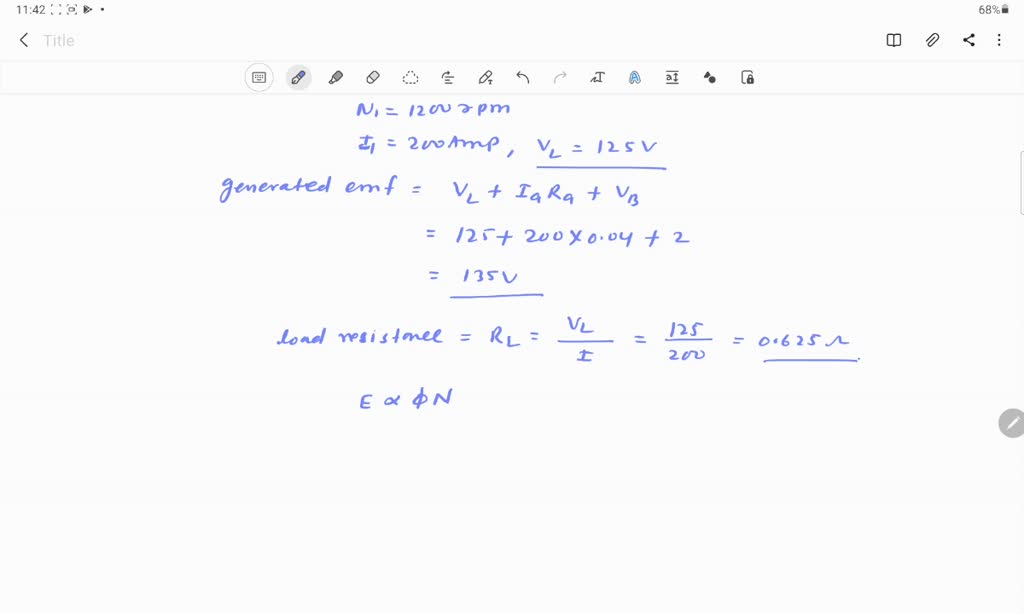 11:42
68%
Title
N₁ = 1200 rpm
I₁ = 200 Amp, V_L = 125V
generated emf = V_L + I_a R_a + V_B
= 125 + 200 × 0.04 + 2
= 135V
load resistance = R_L = V_L / I = 125 / 200 = 0.625 Ω
E ∝ ϕN